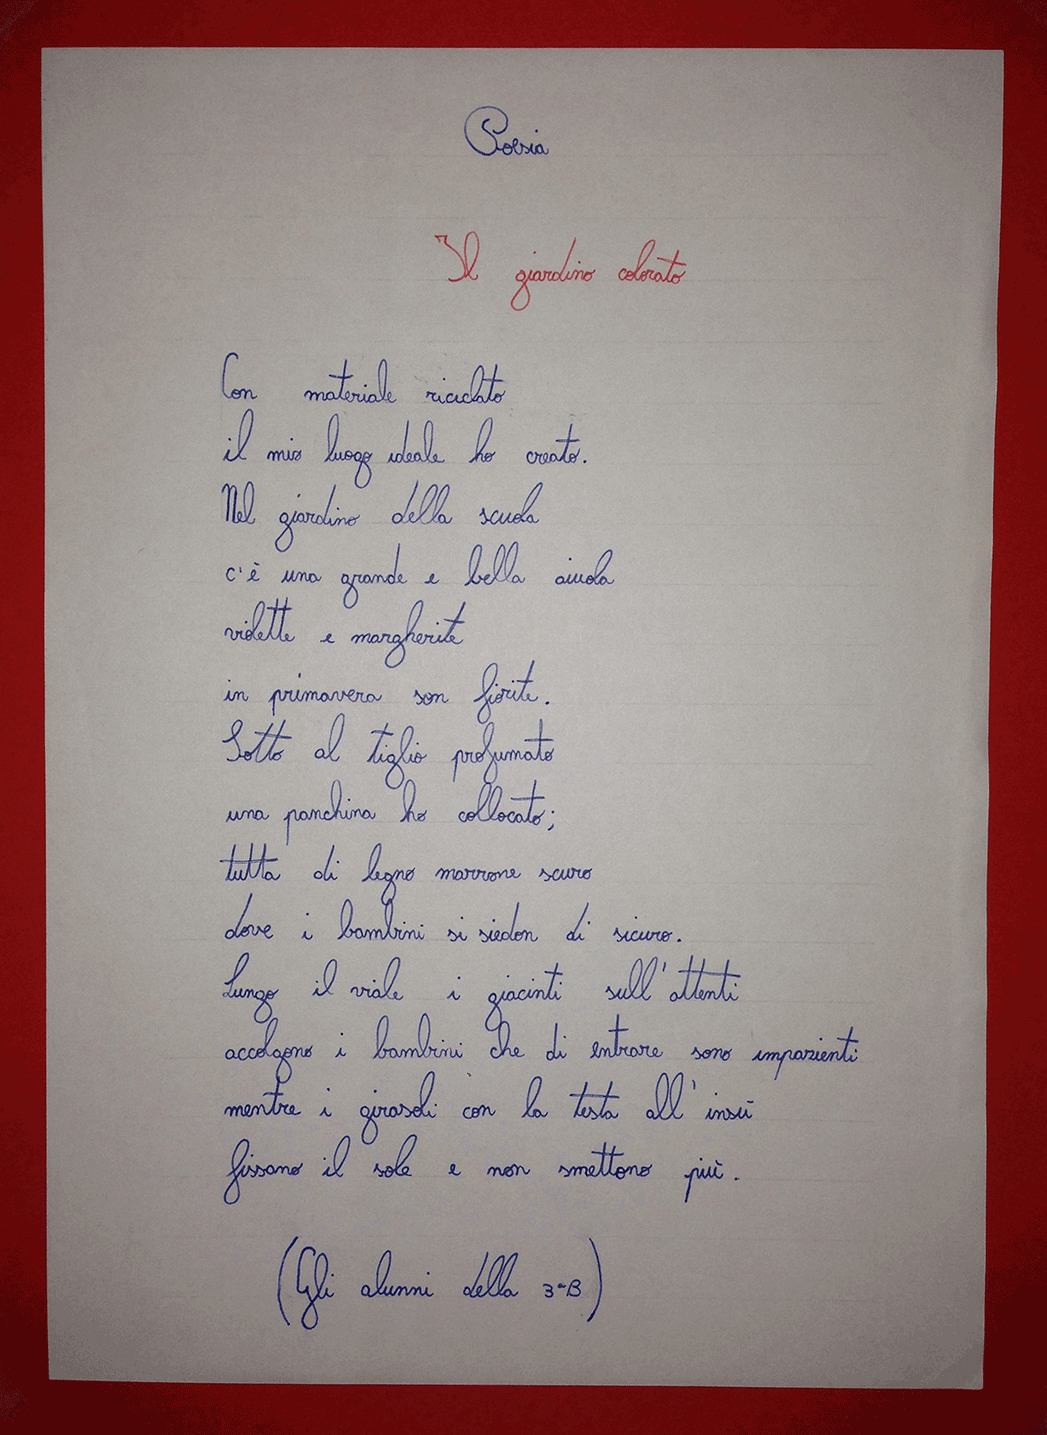 Poesia
Il giardino colorato
Con materiale riciclato
il mio luogo ideale ho creato.
Nel giardino della scuola
c'è una grande e bella aiuola
violette e margherite
in primavera son fiorite.
Sotto al tiglio profumato
una panchina ho collocato;
tutta di legno marrone scuro
dove i bambini si siedon di sicuro.
Lungo il viale i giacinti sull'attenti
accolgono i bambini che di entrare sono impazienti
mentre i girasoli con la testa all'insù
fissano il sole e non smettono più.
(Gli alunni della 3ªB)